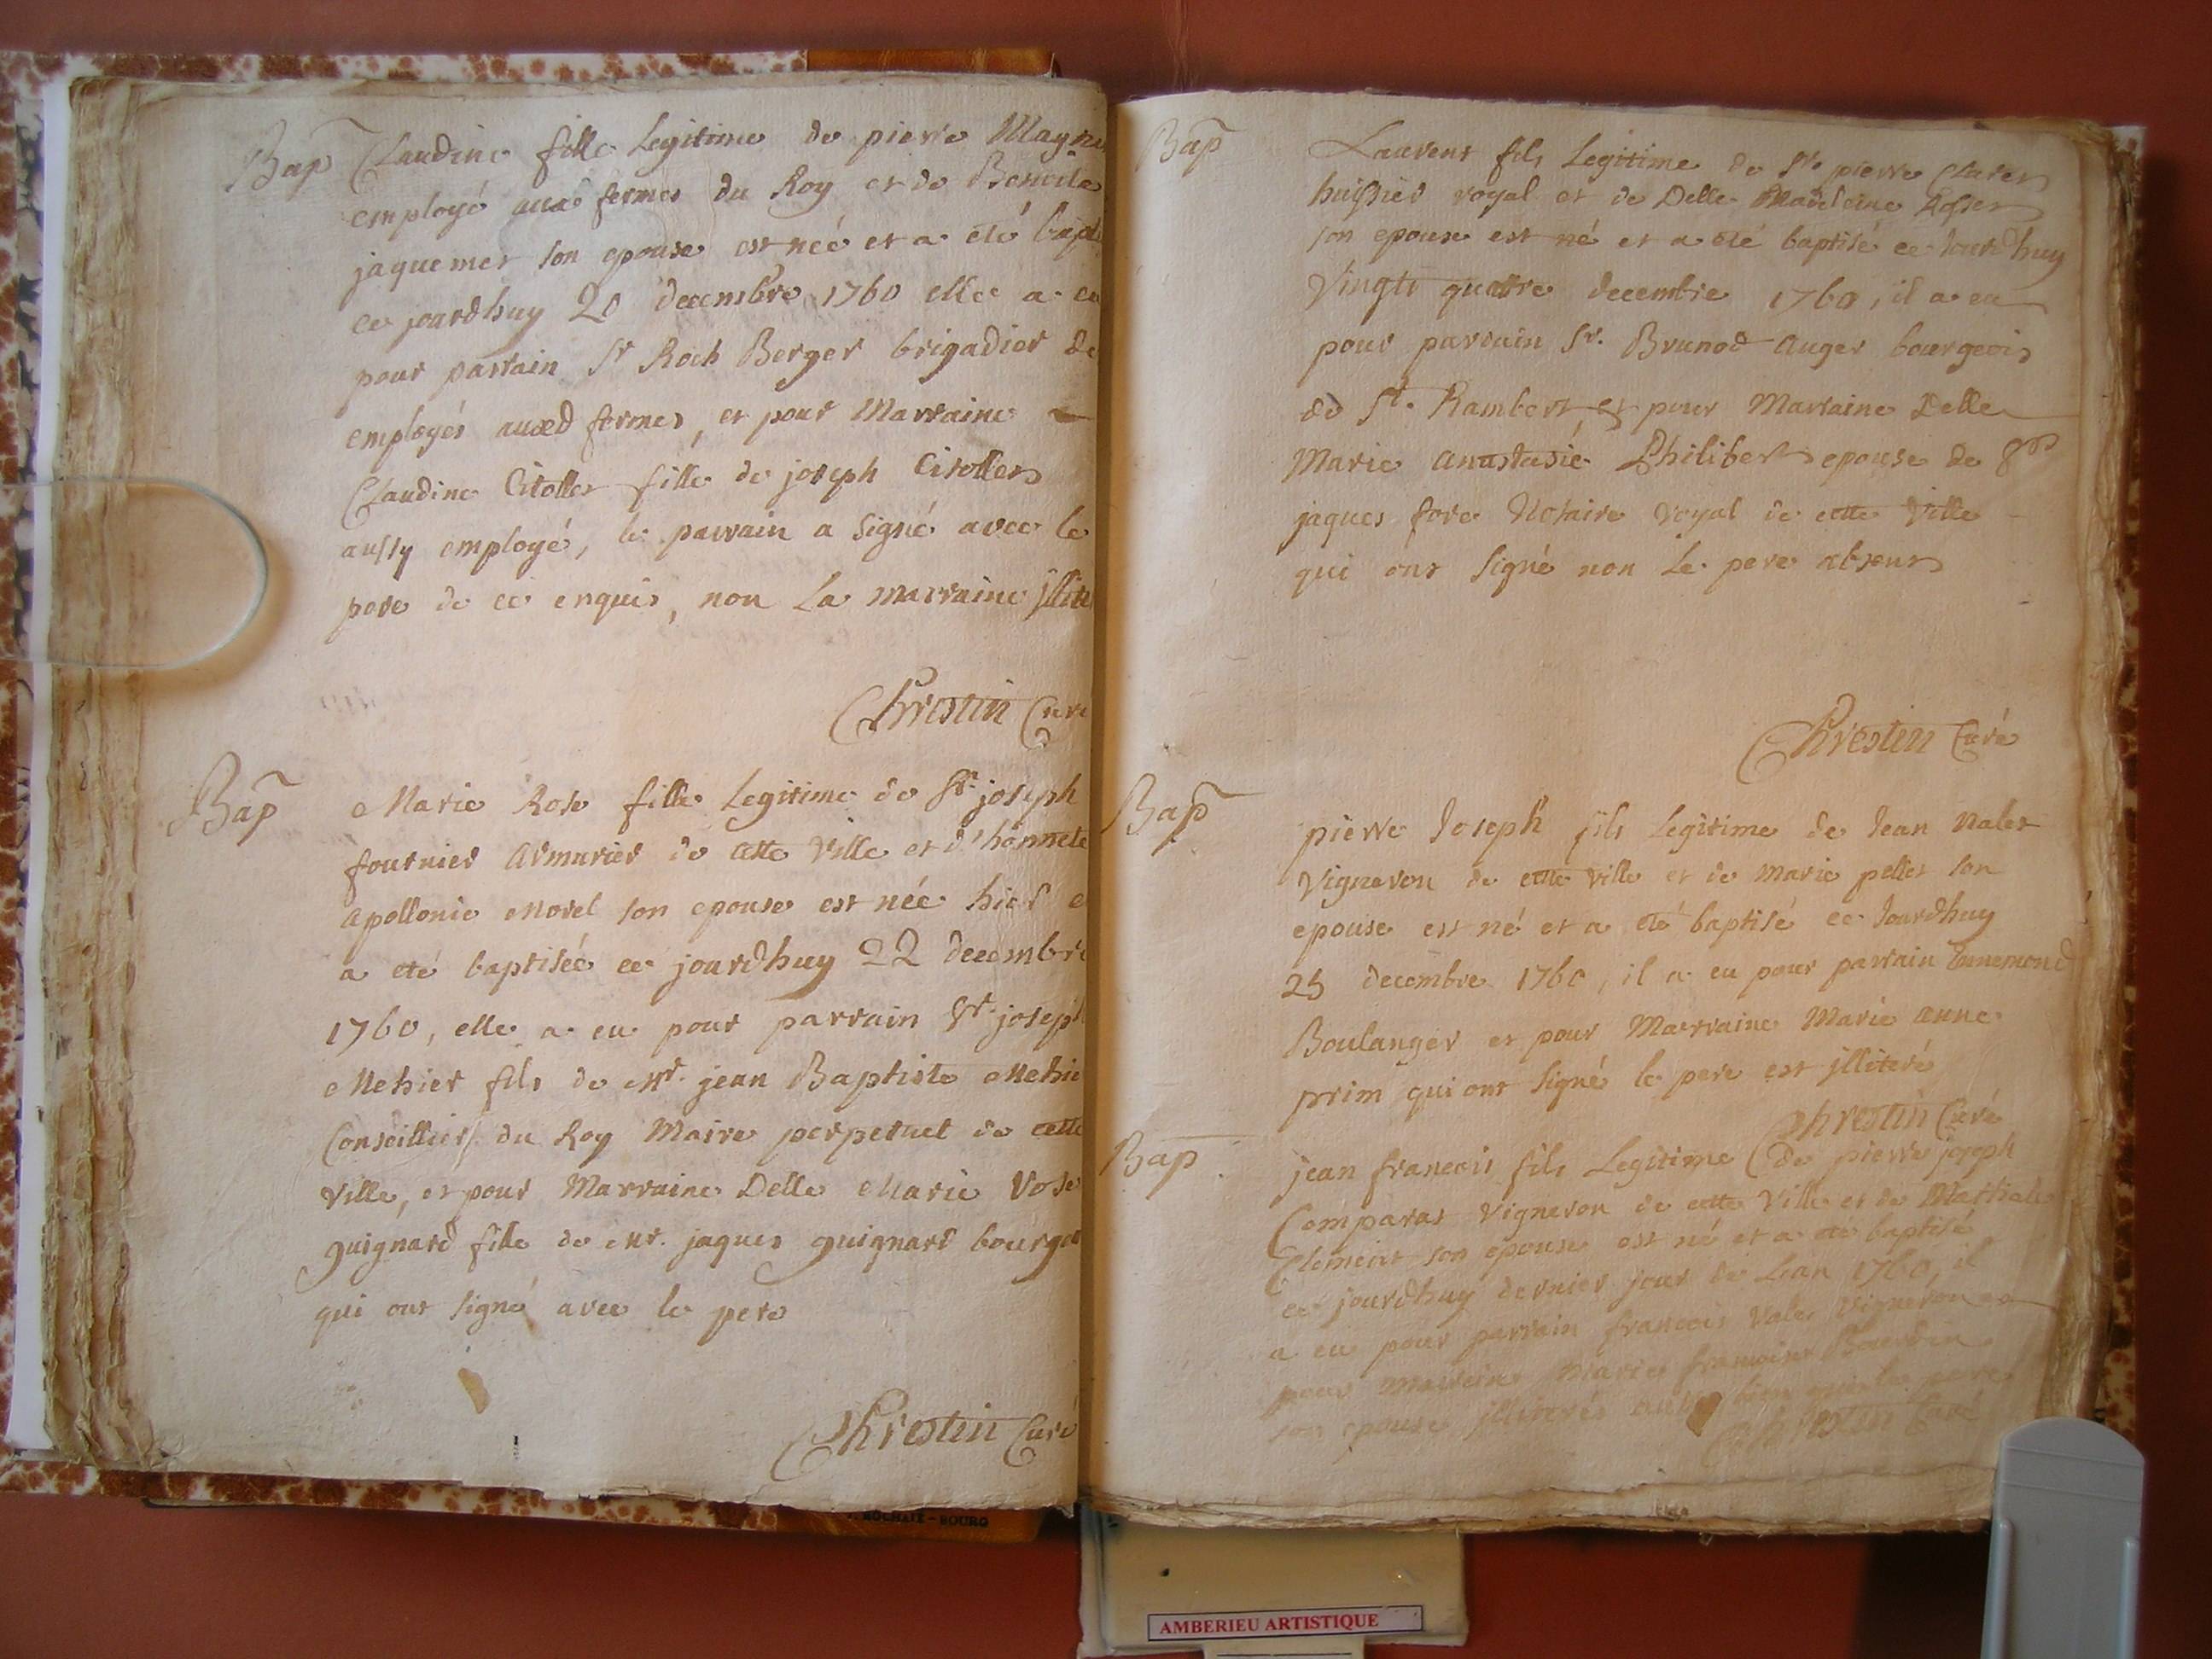 Bap Claudine fille Legitime de pierre Mayne
employé aux fermes du Roy et de Benoite
jaquemet son epouse est née et a été bapt
ce jourdhuy 20 decembre 1760 elle a eu
pour parrain Sr Roch Berger brigadier de
employés auxd fermes, et pour Marraine
Claudine Citollet fille de joseph Citollet
aussy employé, le parrain a signé avec le
pere de ce enquis, non La marraine jllite
Chrestin Curé
Bap Marie Rose fille Legitime de Sr. joseph
fournier Armurier de cette Ville et d'honnete
Apollonie Morel son epouse est née hier e
a eté baptisée ce jourdhuy 22 decembre
1760, elle a eu pour parrain Sr. joseph
Mehier fils de Mr. jean Baptiste Mehie
Conseiller du Roy Maire perpetuel de cette
Ville, et pour Marraine Delle Marie Rose
guignard fille de Mr. jaques guignard bourgeo
qui ont signé avec le pere
Chrestin Curé
Bap Laurent fils Legitime de Sr. pierre Claret
huissier royal et de Delle Madeleine
son epouse est né et a eté baptisé ce Jourdhuy
Vingt quattre decembre 1760, il a eu
pour parrain Sr. Brunod Auger bourgeois
de St. Rambert et pour Marraine Delle
Marie Anastasie Philibert epouse de
jaques fore Notaire royal de cette Ville
qui ont signé non Le pere absent
Chrestin Curé
Bap pierre Joseph fils Legitime de Jean Nalet
Vigneron de cette ville et de Marie pellet son
epouse est né et a eté baptisé ce Jourdhuy
25 decembre 1760, il a eu pour parrain Ennemond
Boulanger et pour Marraine Marie anne
prim qui ont signé le pere est jlliteré
Chrestin Curé
Bap. jean francois fils Legitime de pierre joseph
Comparat Vigneron de cette Ville et de
Clement son epouse est né et a eté baptisé
ce jourdhuy dernier jour de Lan 1760, il
a eu pour parrain francois Valet Vigneron et
pour Marraine Marie francoise Bourdin
son epouse jlliterés aussy bien que le pere
Chrestin Curé
ROCHAIX - BOURG
AMBERIEU ARTISTIQUE